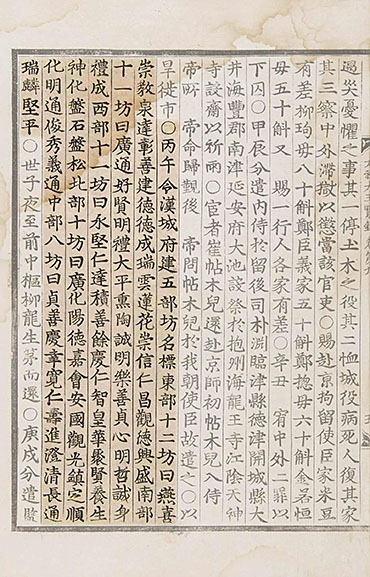 遇災憂懼之事其一停土木之役其二恤城役病死人復其家
其三察中外滯獄以懲當該官吏○賜赴京拘留使臣家米豆
有差柳珣母八十斛鄭臣義家五十斛鄭摠母六十斛金若恒
母五十斛又 賜一行人各家有差○辛丑 宥中外二罪以
下囚○甲辰分遣內侍於留後司朴淵臨津縣德津開城縣大
井海豐郡南津延安府大池設祭於抱州海龍王寺江陰天神
寺設齋以祈雨○宦者崔帖木兒還赴京師初帖木兒入侍
帝所 帝命歸覲後 帝問帖木兒於我朝使臣故遣之○以
旱徙市○丙午令漢城府建五部坊名標東部十二坊曰燕喜
崇敎泉達彰善建德德成瑞雲蓮花崇信仁昌觀德興盛南部
十一坊曰廣通好賢明禮大平熏陶誠明樂善貞心明哲誠身
禮成西部十一坊曰永堅仁達積善餘慶仁智皇華聚賢養生
神化盤石盤松北部十坊曰廣化陽德嘉會安國觀光鎭定順
化明通俊秀義通中部八坊曰貞善慶幸寬仁壽進澄清長通
瑞麟堅平○世子夜至前中樞柳龍生第而還○庚戌分遣監